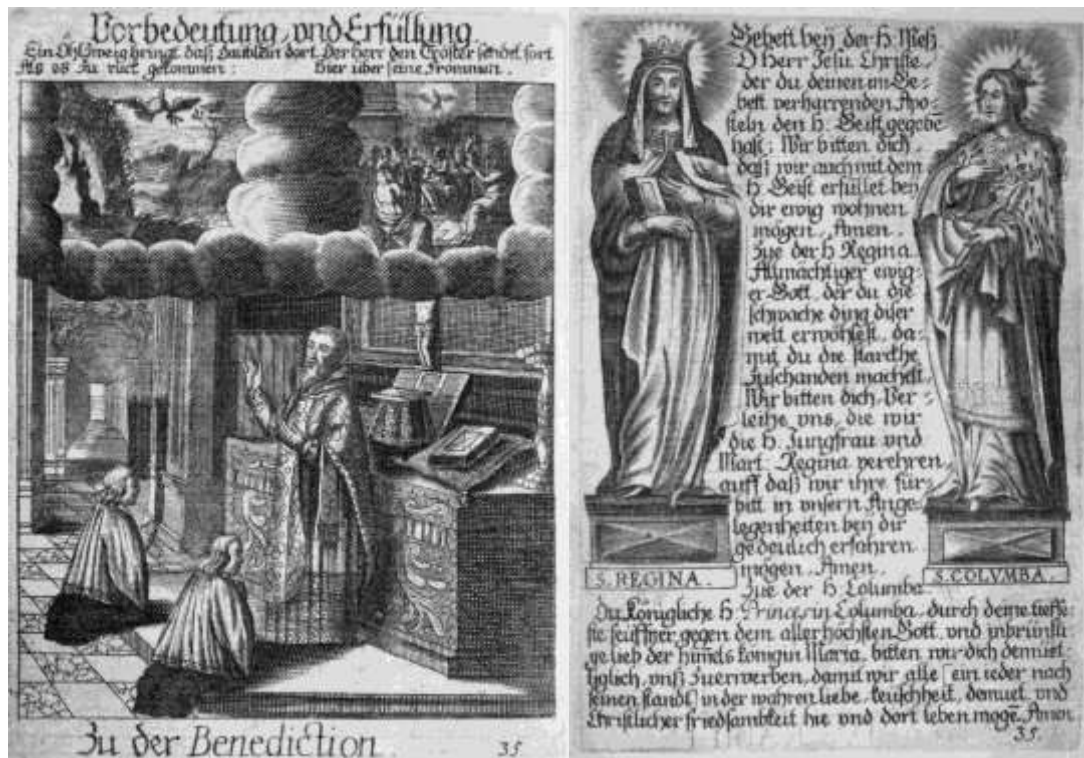 Vorbedeutung, vnd Erfüllung.
Ein Öhlzweig bringt daß Däublein dort, Der Herr den Tröster sendet fort
Als es zu ruct gekommen: Hier über seine Frommen.
Zu der Benediction. 35
Gebett beÿ der H. Meß
O Herr Jesu Christe,
der du deinen im Ge-
bett verharrenden Apo-
steln den H. Geist gegebē
hast; Wir bitten dich,
daß wir auch mit dem
H. Geist erfüllet beÿ
dir ewig wohnen
mögen, Amen.
Zue der H Regina.
Allmächtiger ewig-
er Gott, der du die
schwache ding diser
welt erwöhlest, da-
mit du die starcke
zuschanden machest,
Wir bitten dich, Ver-
leihe vns, die wir
die H. Jungfrau vnd
Mart: Regina verehren,
auff daß wir ihre für-
bitt in vnsern Ange-
legenheiten beÿ dir
gedeulich erfahren
mögen, Amen.
Zue der H Columba.
S. REGINA.
S. COLVMBA.
Du Königliche H. Princesin Columba, durch deine tieffe-
ste seuffzer gegen dem allerhöchsten Gott, vnd inbrünsti-
ge lieb der himels königin Maria, bitten wir dich demüet-
tiglich, vnß zuerwerben, damit wir alle [ein ieder nach
seinen standt] in der wahren liebe, keuschheit, demuet, vnd
Christlicher fridsambkeit hie vnd dort leben mögē, Amen
35.